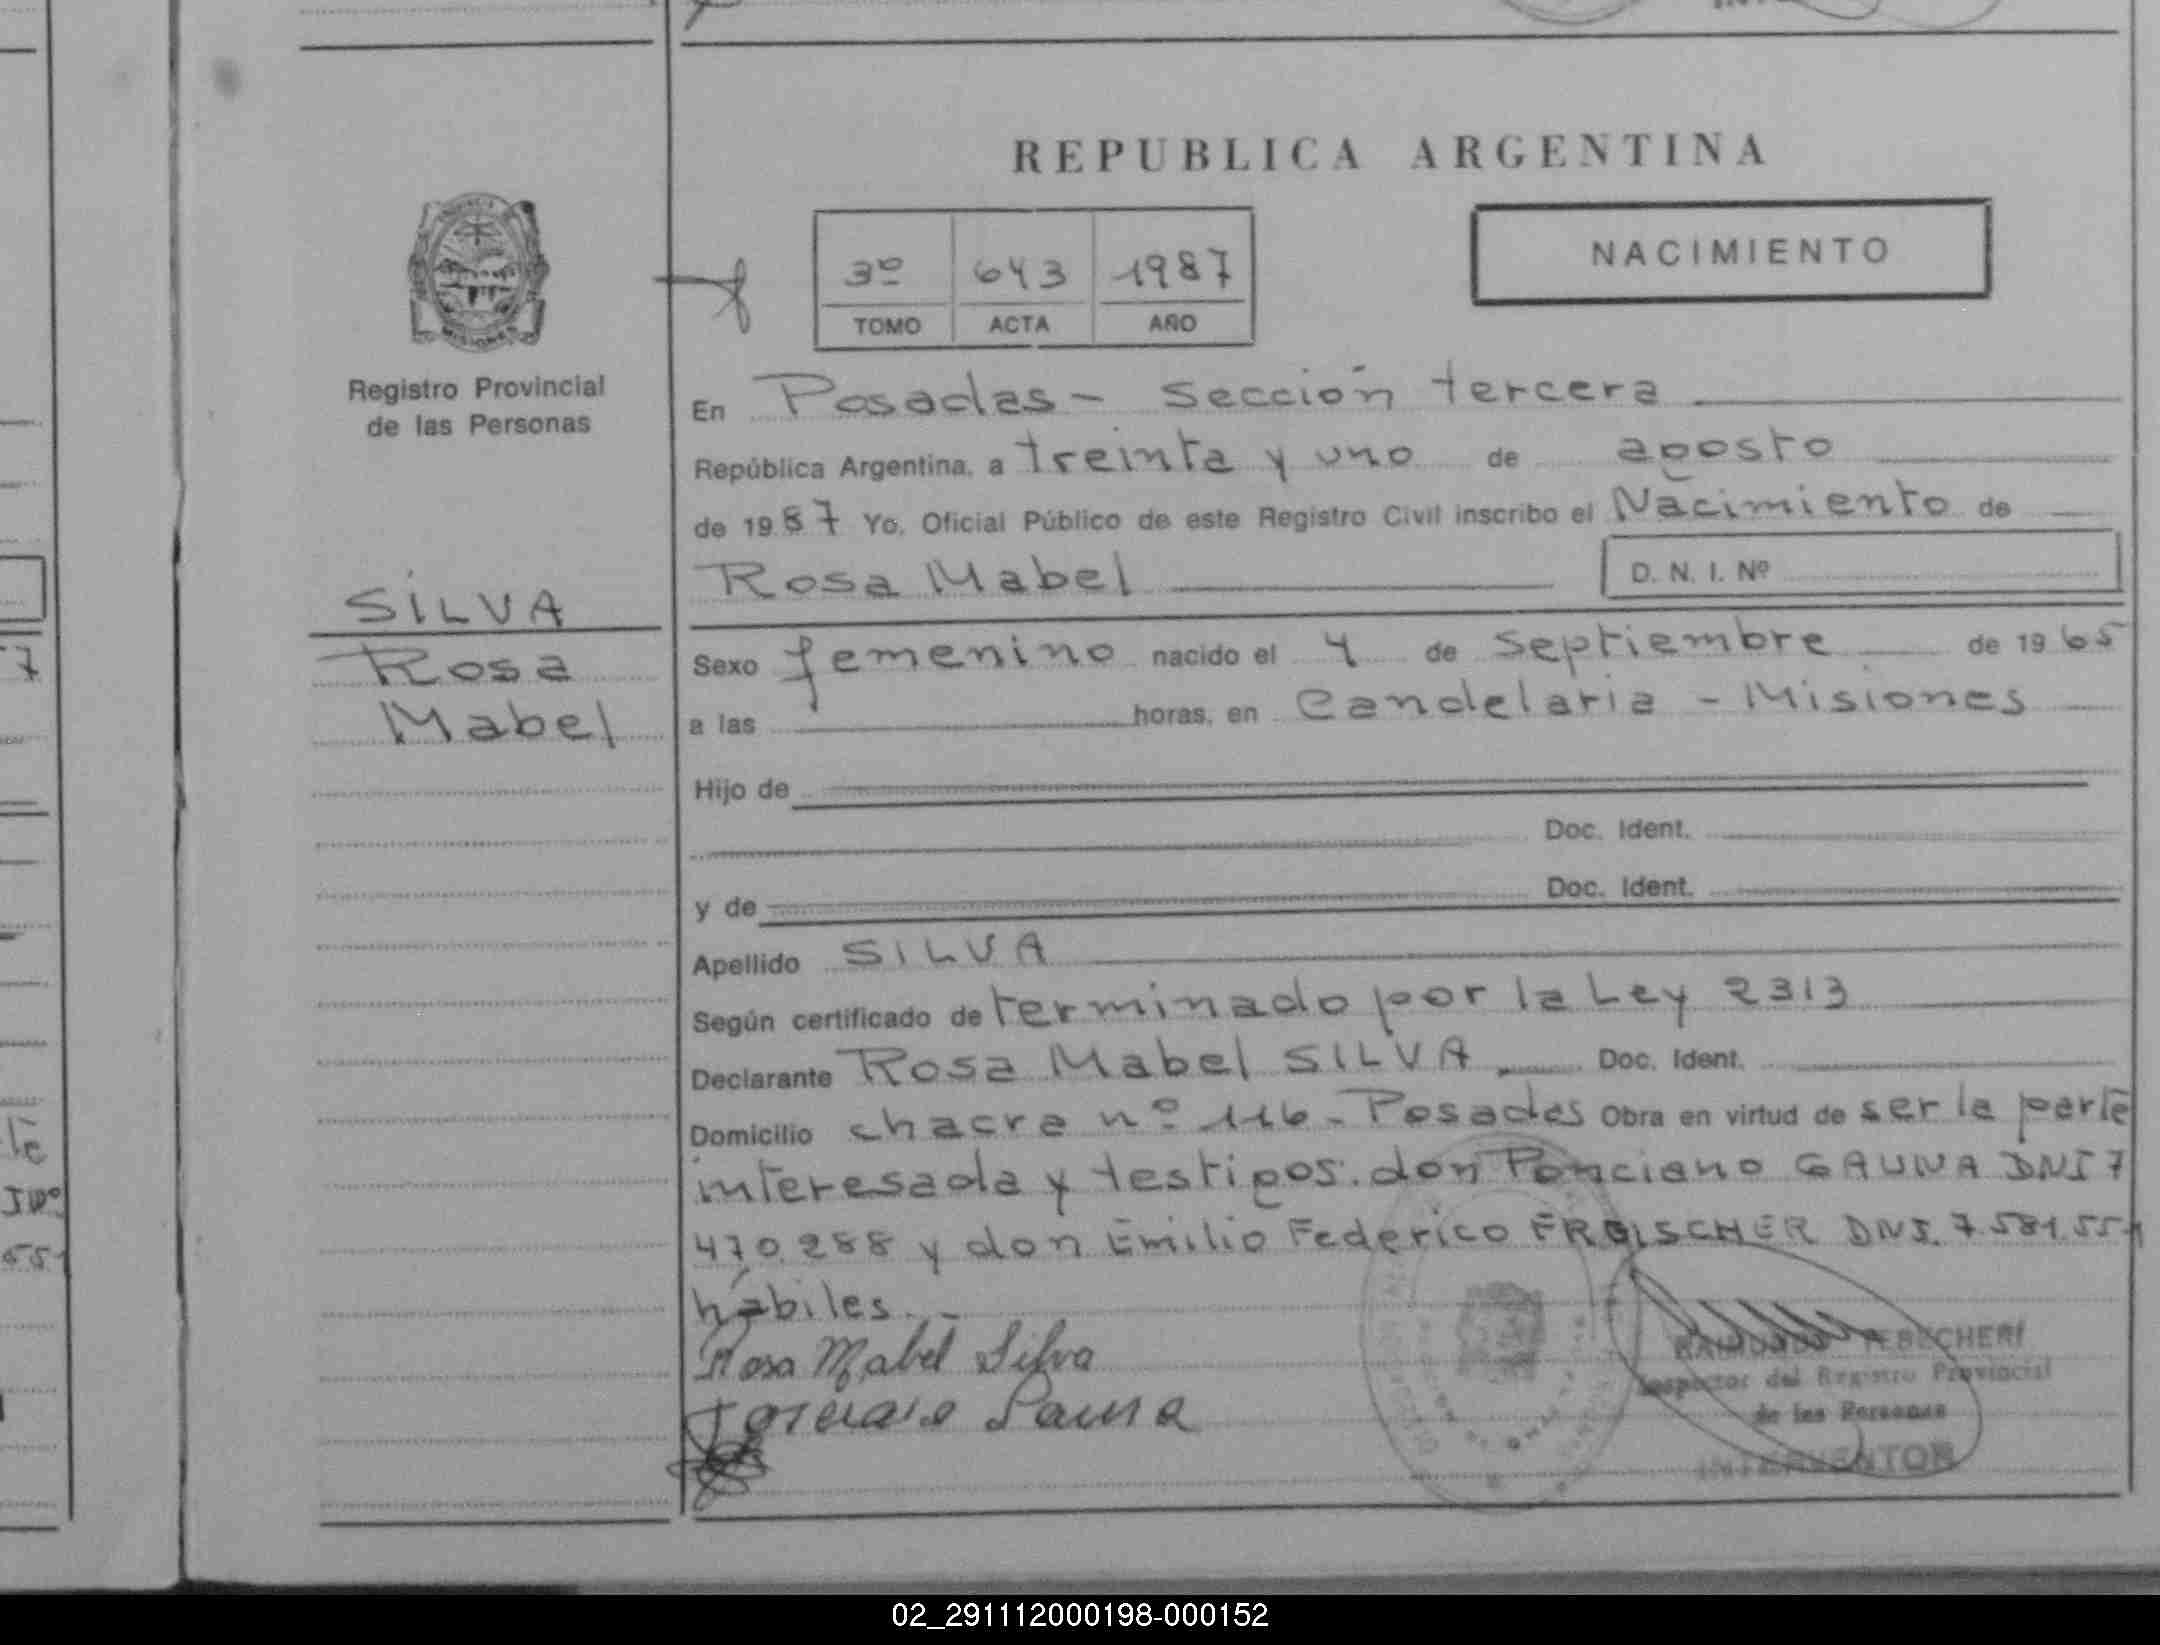 REPUBLICA ARGENTINA
NACIMIENTO
3º 643 1987
TOMO ACTA AÑO
Registro Provincial
de las Personas
SILVA
Rosa
Mabel
En Posadas - Sección tercera
República Argentina, a treinta y uno de agosto
de 1987 Yo, Oficial Público de este Registro Civil inscribo el Nacimiento de
Rosa Mabel D. N. I. Nº
Sexo femenino nacido el 4 de septiembre de 1965
a las horas, en Candelaria - Misiones
Hijo de
Doc. Ident.
y de Doc. Ident.
Apellido SILVA
Según certificado determinado por la Ley 2313
Declarante Rosa Mabel SILVA Doc. Ident.
Domicilio chacra nº 116 - Posadas Obra en virtud de ser la parte
interesada y testigos: don Ponciano GAUNA DNI 7
470.288 y don Emilio Federico DNI. 7.581.551
hábiles.-
Rosa Mabel Silva
Gauna
Inspector del Registro Provincial
de las Personas
INTERVENTOR
02_291112000198-000152